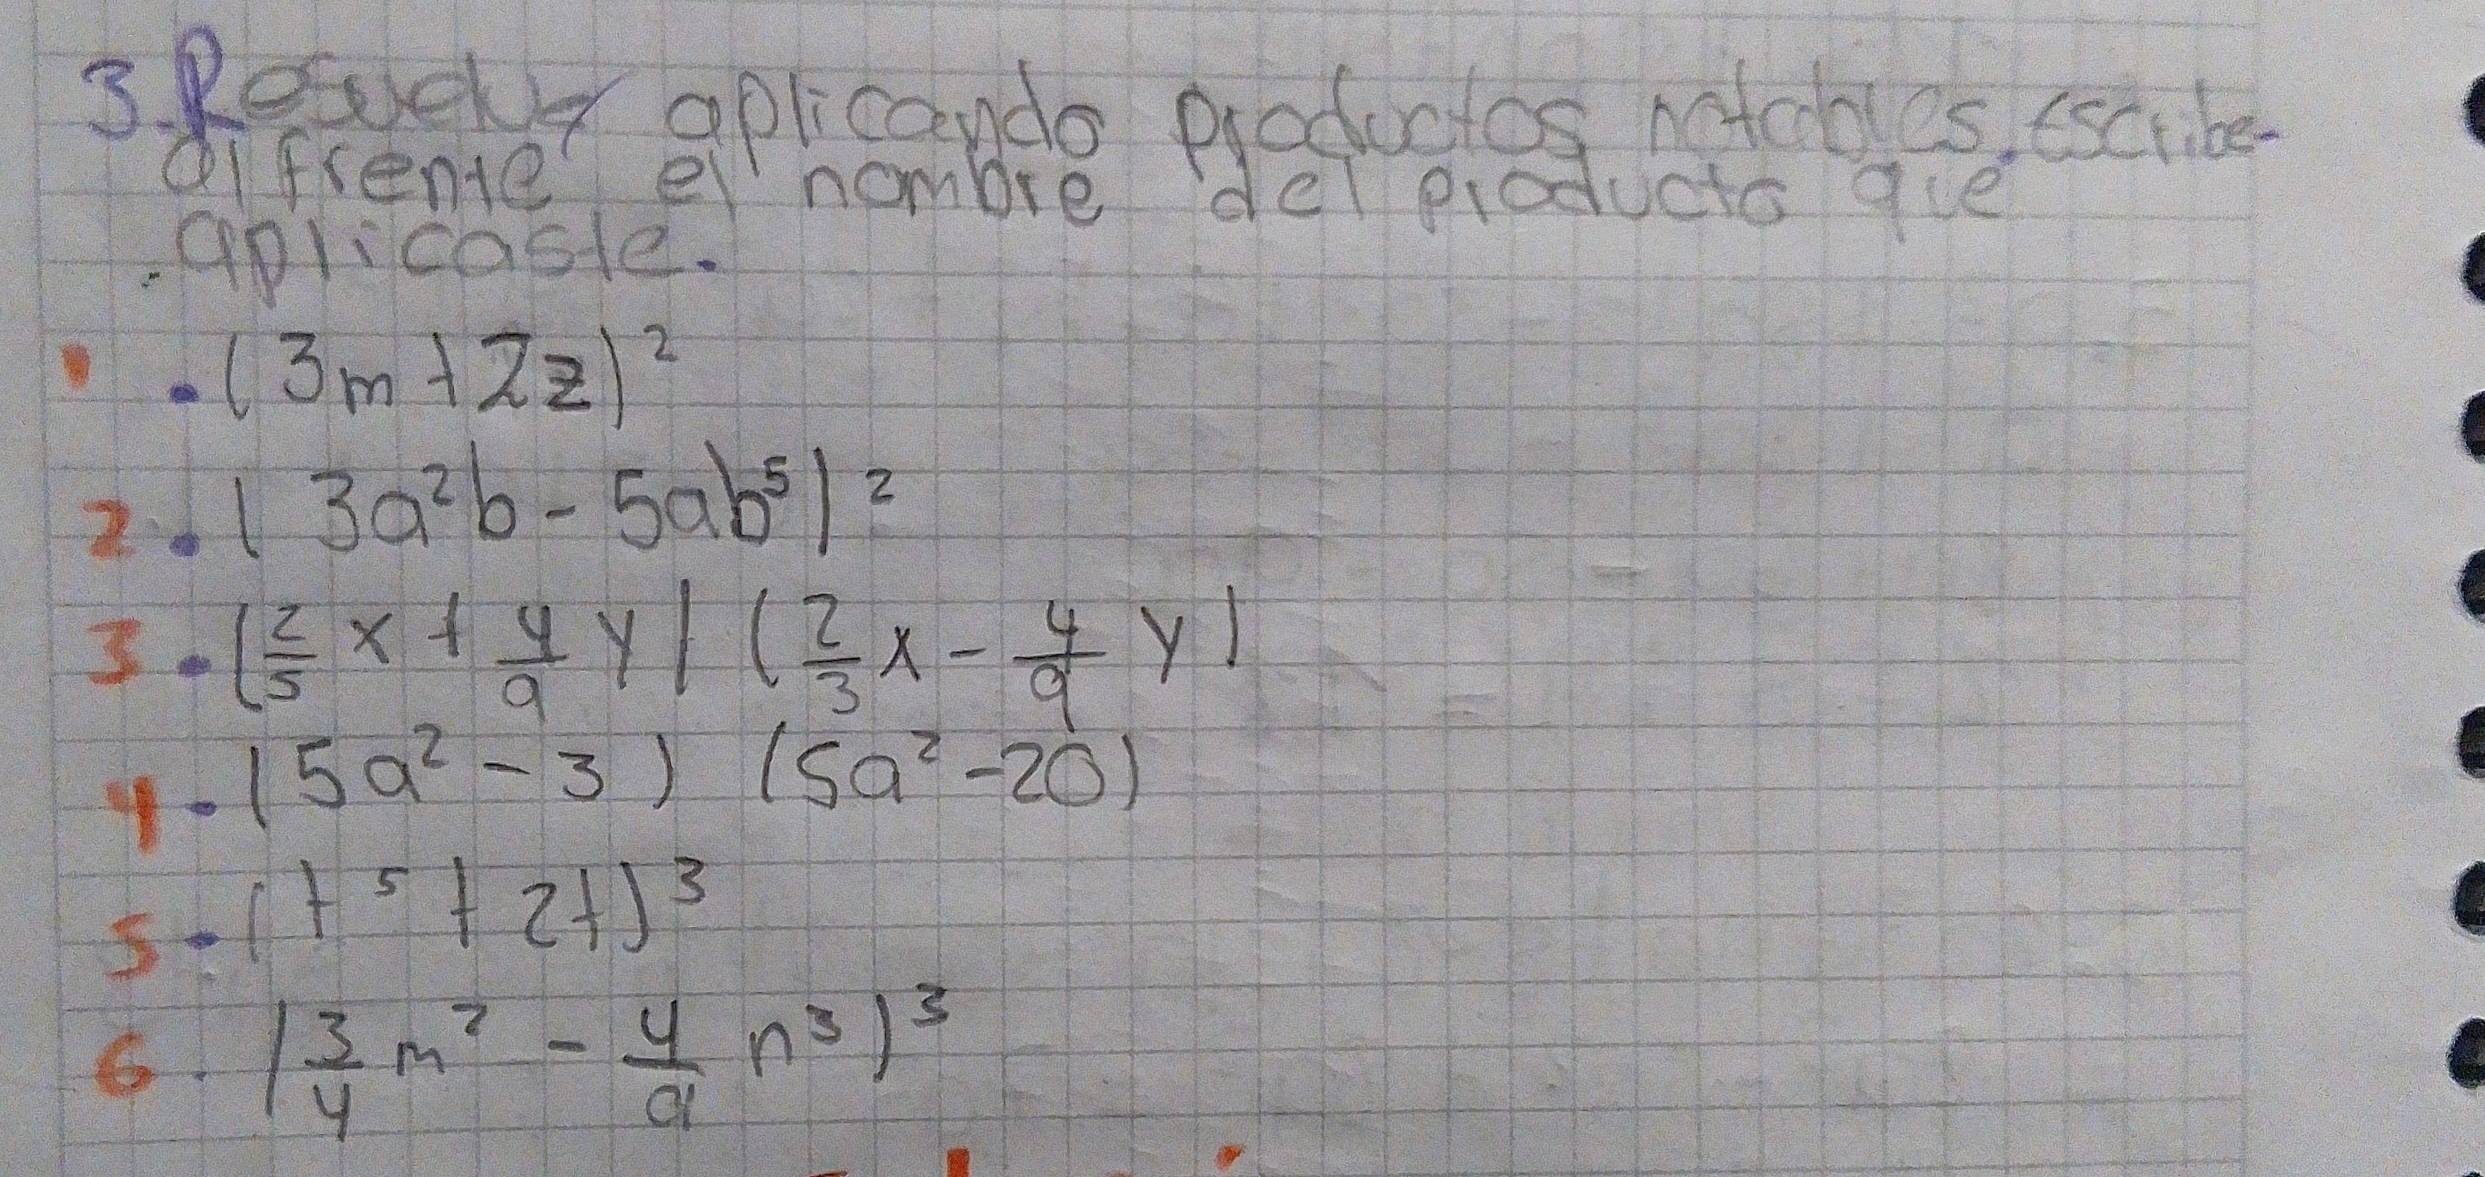 3. Resuelve aplicando productos notables. escribe
al frente el nombre del producto que
aplicaste.
1 . (3m + 2z)²
2 . (3a²b - 5ab⁵)²
3 . (2/5 x + 4/9 y) (2/3 x - 4/9 y)
4 . (5a² - 3) (5a² - 20)
5 . (t⁵ + 2t)³
6 . (3/4 m² - 4/9 n³)³